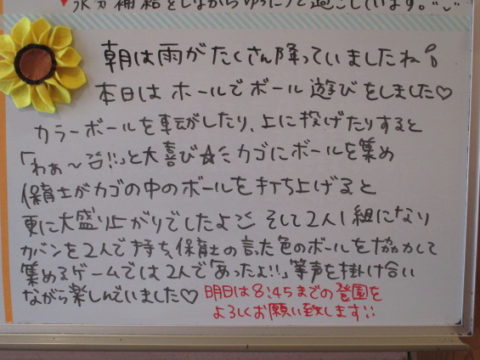 水分補給をしながらゆったりと過ごしています。
朝は雨がたくさん降っていましたね!
本日はホールでボール遊びをしました♡
カラーボールを転がしたり、上に投げたりすると
「わぁ～!!」と大喜び☆ミカゴにボールを集め
保育士がカゴの中のボールを打ち上げると
更に大盛り上がりでしたよ そして2人1組になり
カバンを2人で持ち、保育士の言った色のボールを協力して
集めるゲームでは2人で「あったよ!!」等声を掛け合い
ながら楽しんでいました♡ 明日は8:45までの登園を
よろしくお願い致します!!